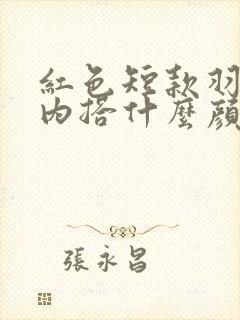 紅色短款羽
內搭什麼顏
張永昌